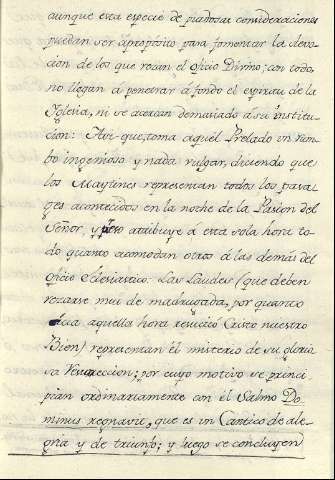 aunque esta especie de piadosas consideraciones
puedan ser apropósito para fomentar la devo-
cion de los que rezan el oficio Divino; con todo,
no llegan a penetrar á fondo el espiritu de la
Iglesia, ni se acercan demasiado a su institu-
cion: Asi que, toma aquel Prelado un rum-
bo ingenioso y nada vulgar, diciendo que
los Maytines representan todos los pasa-
ges acontecidos en la noche de la Pasion del
Señor, y atribuye a esta sola hora to-
do quanto acomodan otros á las demás del
oficio Eclesiastico. Las Laudes (que deben
rezarse mui de madrugada, por quanto
acia aquella hora resucitó Cristo nuestro
Bien) representan el misterio de su glorio
sa Resureccion; por cuyo motivo se princi
pian ordinariamente con el Salmo Do-
minus regnavit, que es un Cantico de ale-
gria y de triunfo; y luego se concluyen